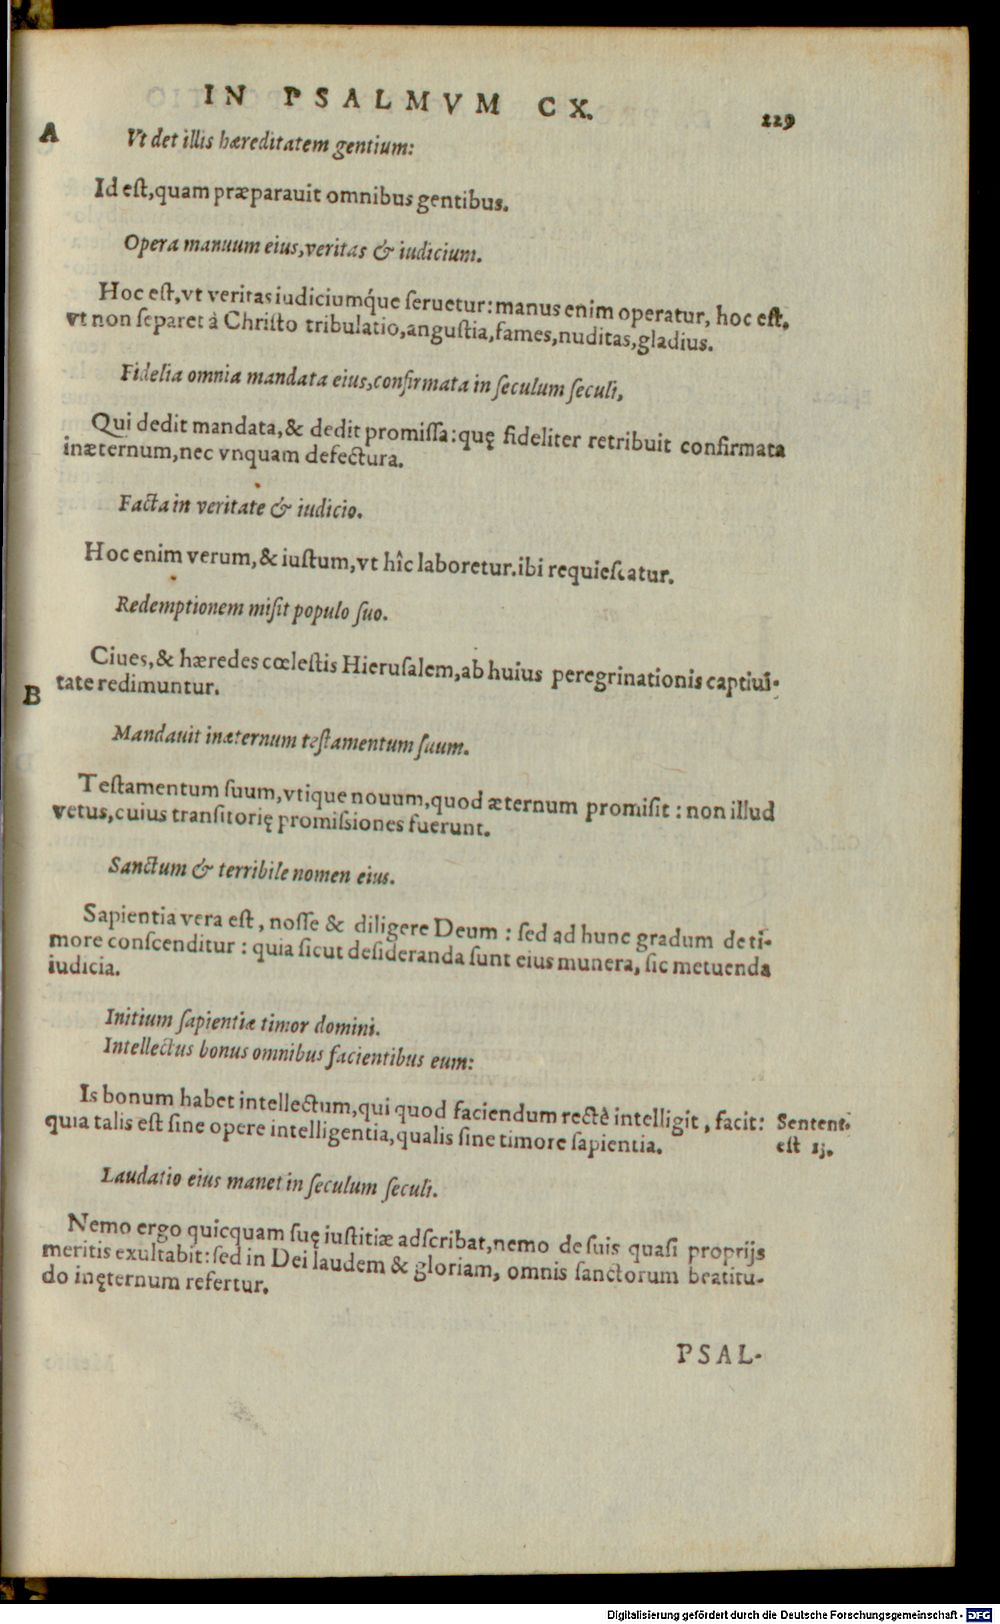 IN PSALMVM CX.
229
A
Vt det illis hæreditatem gentium:
Id eſt, quam præparauit omnibus gentibus.
Opera manuum eius, veritas & iudicium.
Hoc eſt, vt veritas iudiciumq́ue ſeruetur: manus enim operatur, hoc eſt,
vt non ſeparet à Chriſto tribulatio, anguſtia, fames, nuditas, gladius.
Fidelia omnia mandata eius, confirmata in ſeculum ſeculi,
Qui dedit mandata, & dedit promiſſa: quę fideliter retribuit confirmata
inæternum, nec vnquam defectura.
Facta in veritate & iudicio.
Hoc enim verum, & iuſtum, vt hîc laboretur. ibi requieſcatur.
Redemptionem miſit populo ſuo.
Ciues, & hæredes cœleſtis Hieruſalem, ab huius peregrinationis captiui-
B
tate redimuntur.
Mandauit inæternum teſtamentum ſuum.
Teſtamentum ſuum, vtique nouum, quod æternum promiſit: non illud
vetus, cuius tranſitorię promiſsiones fuerunt.
Sanctum & terribile nomen eius.
Sapientia vera eſt, noſſe & diligere Deum: ſed ad hunc gradum de ti-
more conſcenditur: quia ſicut deſideranda ſunt eius munera, ſic metuenda
iudicia.
Initium ſapientiæ timor domini.
Intellectus bonus omnibus facientibus eum:
Is bonum habet intellectum, qui quod faciendum rectè intelligit, facit:
Sentent.
quia talis eſt ſine opere intelligentia, qualis ſine timore ſapientia.
eſt 1j.
Laudatio eius manet in ſeculum ſeculi.
Nemo ergo quicquam ſuę iuſtitiæ adſcribat, nemo de ſuis quaſi proprijs
meritis exultabit: ſed in Dei laudem & gloriam, omnis ſanctorum beatitu-
do inęternum refertur.
PSAL-
Digitalisierung gefördert durch die Deutsche Forschungsgemeinschaft - DFG